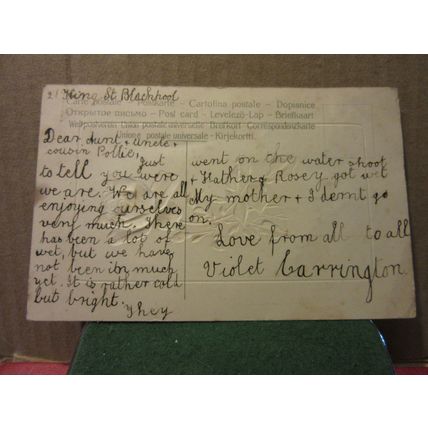 21 King St Blackpool
Carte postale – Postkarte – Cartolina postale – Dopisnice
Открытое письмо – Post card – Levelező-Lap – Briefkaart
Weltpostverein Union postale universelle Brefkort Correspondenzkarte
Unione postale universale – Kirjekortti.
Dear Aunt & Uncle &
cousin Pollie,
Just
to tell you were
we are. We are all
enjoying ourselves
very much. There
has been a lot of
wet, but we have
not been itn much
yet. It is rather cold
but bright. They
went on the water shoot
& Father & Rosey got wet
My mother & I demt go
on.
Love from all to all
Violet Carrington.